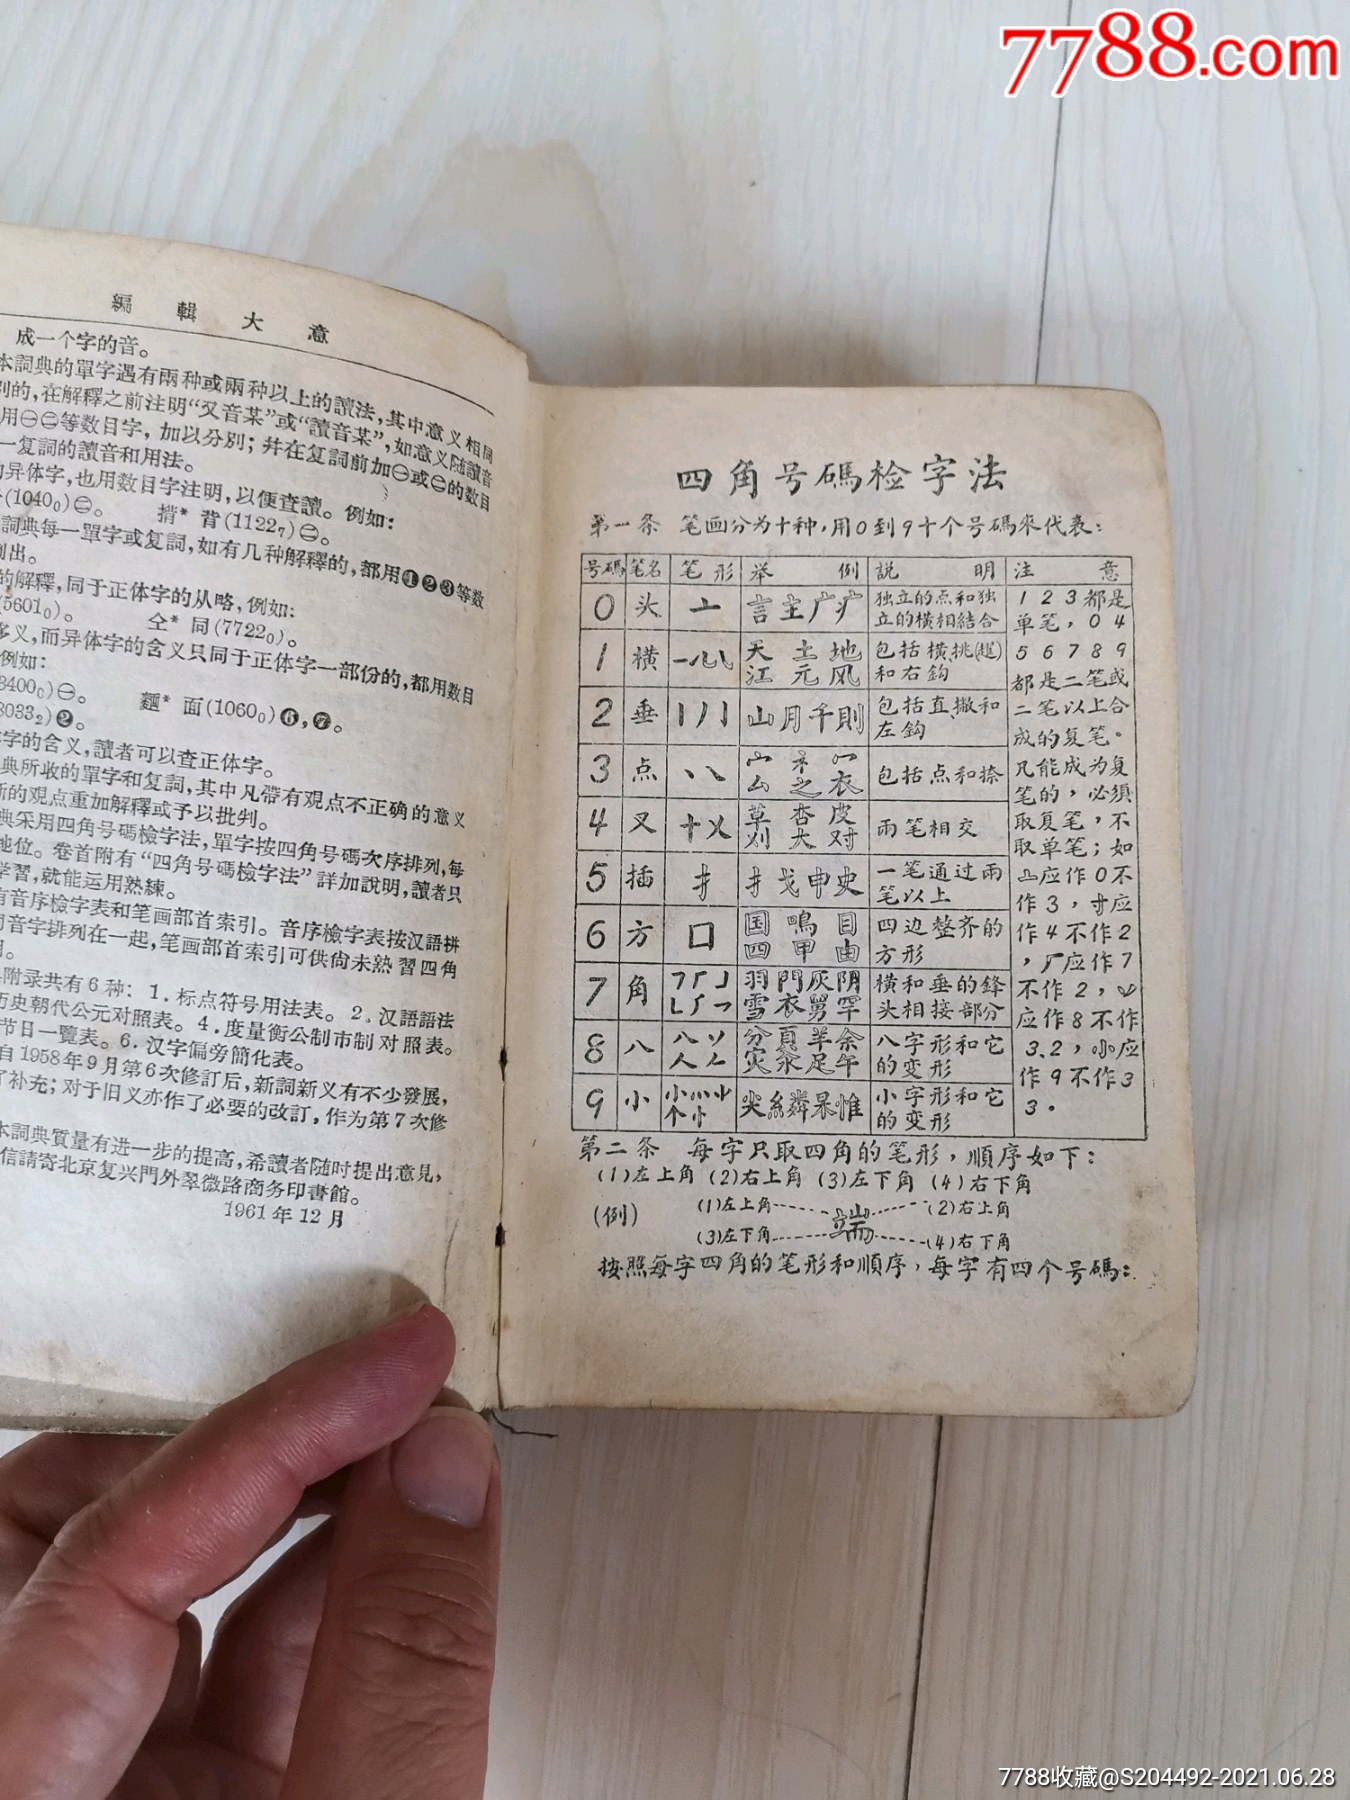 7788.com
編輯大意
成一个字的音。
本詞典的單字遇有兩种或兩种以上的讀法,其中意义相同
别的,在解釋之前注明“又音某”或“讀音某”,如意义随讀音
用㊀㊁等数目字,加以分别;幷在复詞前加㊀或㊁的数目
一复詞的讀音和用法。
异体字,也用数目字注明,以便查讀。例如:
(1040₀)㊁。 揹* 背(1122₇)㊁。
詞典每一單字或复詞,如有几种解釋的,都用❶❷❸等数
列出。
的解釋,同于正体字的从略,例如:
(5601₀)。 仝* 同(7722₀)。
多义,而异体字的含义只同于正体字一部份的,都用数目
例如:
3400₀)㊀。 麵* 面(1060₀)❻,❼。
3033₂)❷。
字的含义,讀者可以查正体字。
典所收的單字和复詞,其中凡帶有观点不正确的意义
新的观点重加解釋或予以批判。
典采用四角号碼檢字法,單字按四角号碼次序排列,每
地位。卷首附有“四角号碼檢字法”詳加說明,讀者只
学習,就能运用熟練。
有音序檢字表和笔画部首索引。音序檢字表按汉語拼
同音字排列在一起,笔画部首索引可供尙未熟習四角
用。
附录共有6种:1.标点符号用法表。2.汉語語法
历史朝代公元对照表。4.度量衡公制市制对照表。
节日一覽表。6.汉字偏旁簡化表。
自1958年9月第6次修訂后,新詞新义有不少發展,
了补充;对于旧义亦作了必要的改訂,作为第7次修
本詞典質量有进一步的提高,希讀者随时提出意見,
信請寄北京复兴門外翠微路商务印書館。
1961年12月
四角号碼检字法
第一条 笔画分为十种,用0到9十个号碼來代表:
号碼 笔名 笔形 举例 説明 注意
0 头 亠 言主广疒 独立的点和独
立的横相結合
1 横 天土地
江元风 包括横,挑(趯)
和右鈎
2 垂 山月千則 包括直,撇和
左鈎
3 点 宀礻冖
厶之衣 包括点和捺
4 叉 十乂 草杏皮
刈大对 兩笔相交
5 插 扌 扌戈申史 一笔通过兩
笔以上
6 方 口 国鳴目
四甲由 四边整齐的
方形
7 角 羽門灰阴
雪衣罕 横和垂的鋒
头相接部分
8 八 分頁羊余
汆足午 八字形和它
的变形
9 小 尖糹粦杲惟 小字形和它
的变形
1 2 3都是
单笔,0 4
5 6 7 8 9
都是二笔或
二笔以上合
成的复笔。
凡能成为复
笔的,必須
取复笔,不
取单笔;如
亠应作0不
作3,寸应
作4不作2
,厂应作7
不作2,丷
应作8不作
3.2,小应
作9不作3
3。
第二条 每字只取四角的笔形,順序如下:
(1)左上角 (2)右上角 (3)左下角 (4)右下角
(例) (1)左上角 端 (2)右上角
(3)左下角 (4)右下角
按照每字四角的笔形和順序,每字有四个号碼:
7788收藏@S204492-2021.06.28